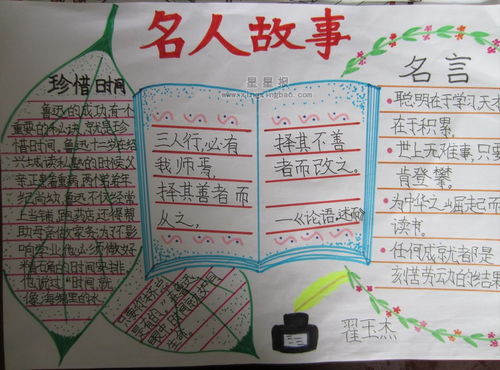 名人故事
星星报
www.xingxingbao.com
珍惜时间
鲁迅的成功,有个
重要的秘诀,就是珍
惜时间。鲁迅十二岁在绍
兴城读私塾的时候,父
亲正患着重病,两个弟弟年
纪尚幼,鲁迅不仅经常
上当铺,跑药店,还得帮
助母亲做家务,为不影
响学业,他必须做好
精确的时间安排。
他说过"时间,就
像海绵里的水
三人行,必有
我师焉,
择其善者而
从之,
择其不善
者而改之。
—《论语·述而》
名言
聪明在于学习,天才
在于积累。
世上无难事,只要
肯登攀。
为中华之崛起而
读书。
任何成就都是
刻苦劳动的结果
翟玉杰